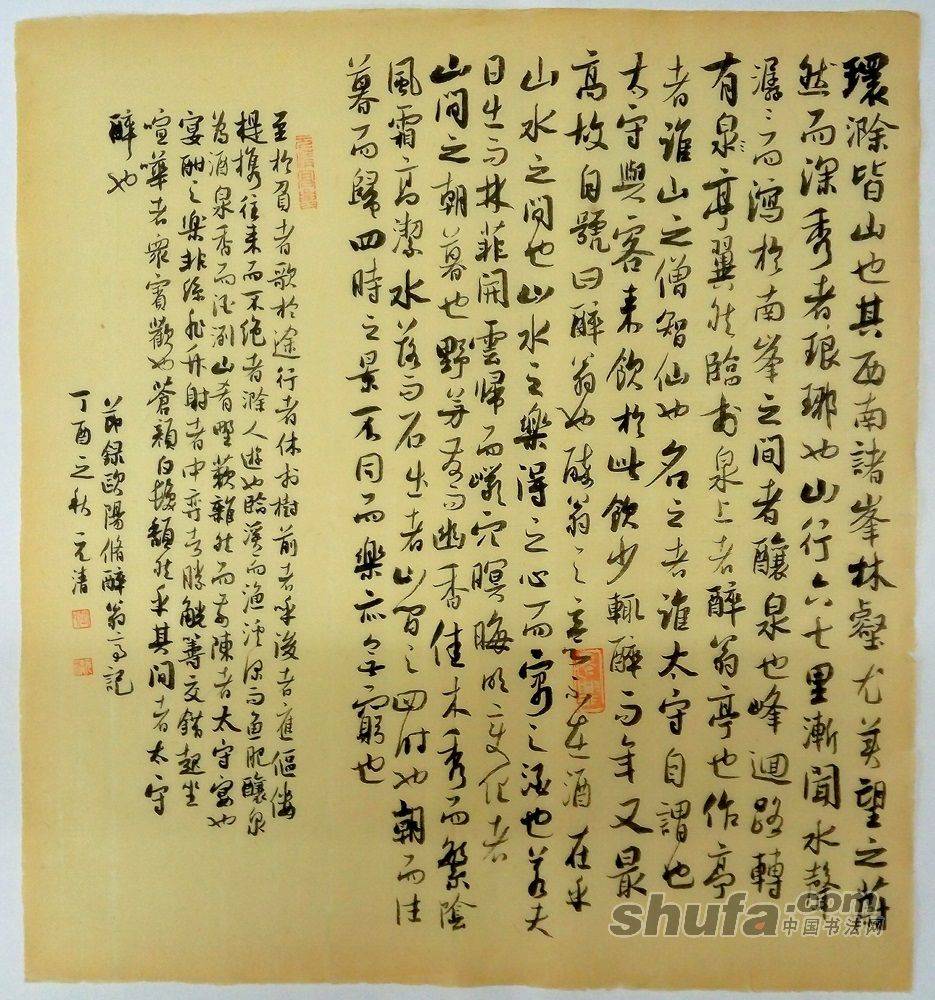 環滁皆山也其西南諸峯林壑尤美望之蔚
然而深秀者琅琊也山行六七里漸聞水聲
潺潺而瀉於南峯之間者釀泉也峰迴路轉
有泉亭翼然臨於泉上者醉翁亭也作亭
者誰山之僧智仙也名之者誰太守自謂也
太守與客來飲於此飲少輒醉而年又最
高故自號曰醉翁也醉翁之意不在酒在乎
山水之間也山水之樂得之心而寓之酒也若夫
日出而林菲開雲歸而巖穴暝晦明變化者
山間之朝暮也野芳發而幽香佳木秀而繁陰
風霜高潔水落而石出者山間之四時也朝而往
暮而歸四時之景不同而樂亦無窮也
至於負者歌於途行者休於樹前者呼後者應傴僂
提攜往來而不絕者滁人遊也臨溪而漁溪深而魚肥釀泉
為酒泉香而酒洌山肴野蔌雜然而前陳者太守宴也
宴酣之樂非絲非竹射者中弈者勝觥籌交錯起坐
喧嘩者衆賓歡也蒼顏白髮頹然乎其間者太守
醉也
節錄歐陽脩醉翁亭記
丁酉之秋元清
shufa.com
中国书法网